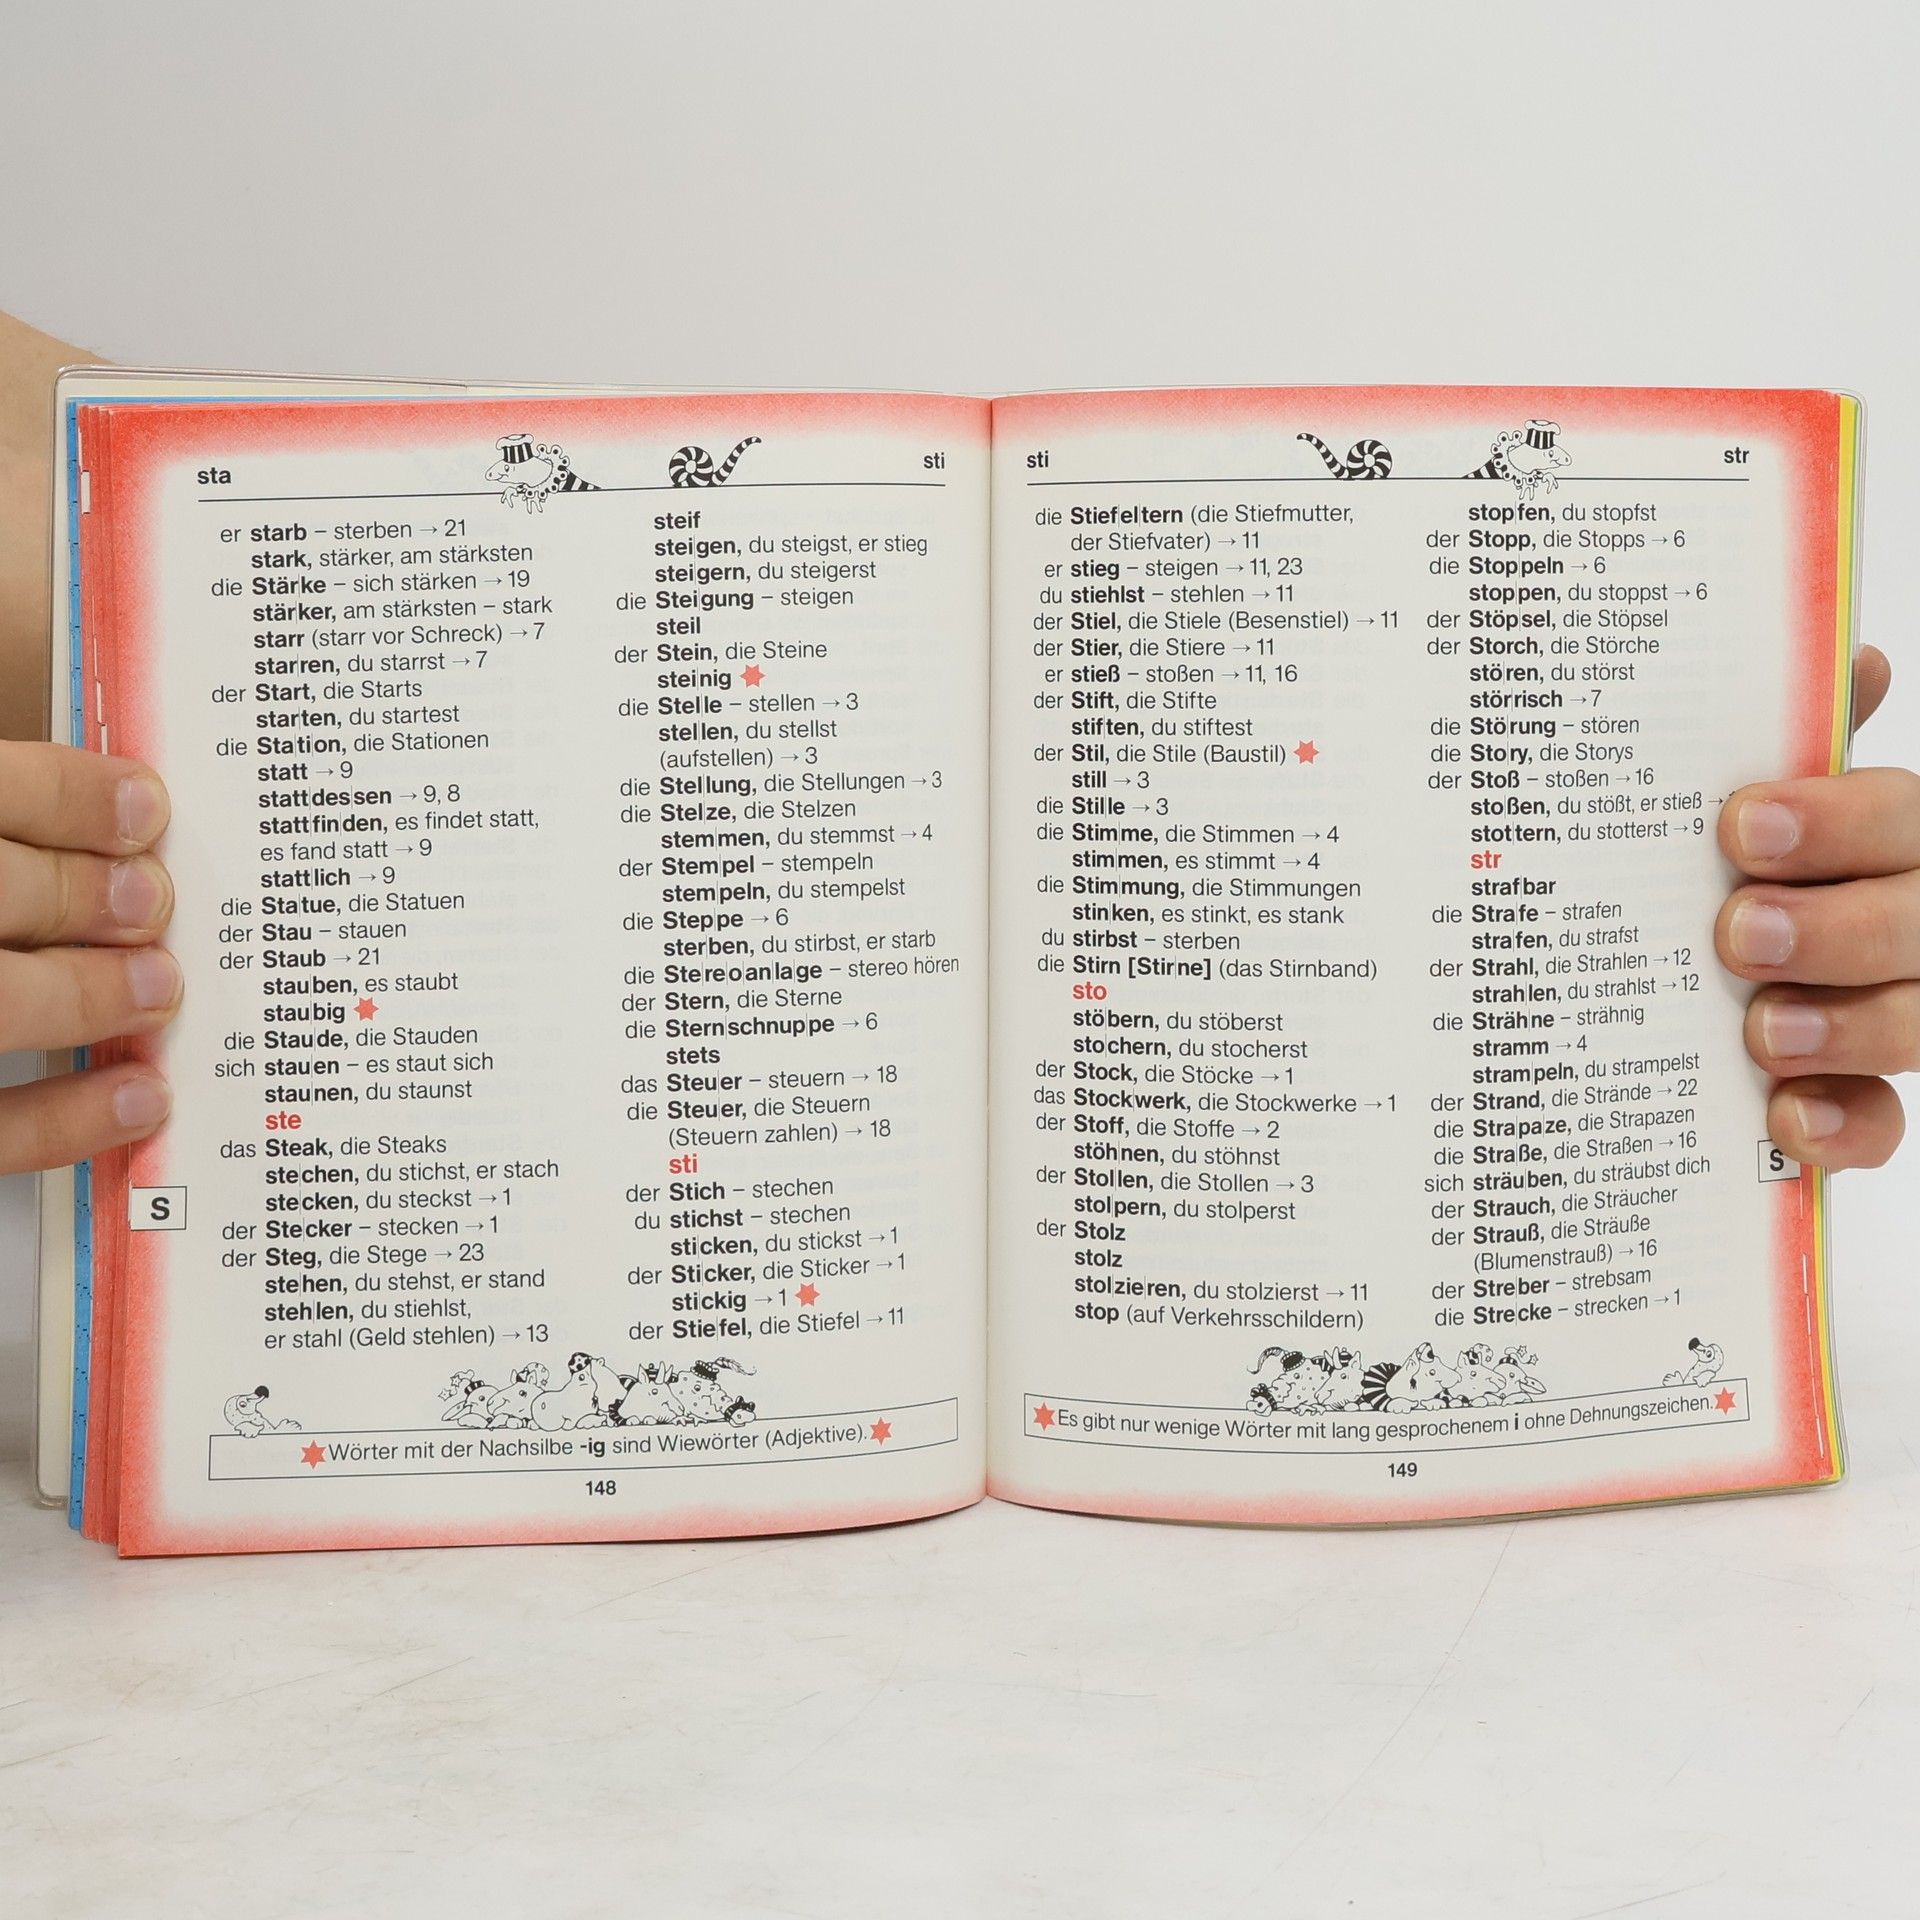 sta
sti
er starb – sterben → 21
stark, stärker, am stärksten
die Stär|ke – sich stärken → 19
stär|ker, am stärksten – stark
starr (starr vor Schreck) → 7
star|ren, du starrst → 7
der Start, die Starts
star|ten, du startest
die Sta|ti|on, die Stationen
statt → 9
statt|des|sen → 9, 8
statt|fin|den, es findet statt,
es fand statt → 9
statt|lich → 9
die Sta|tue, die Statuen
der Stau – stauen
der Staub → 21
stau|ben, es staubt
stau|big
die Stau|de, die Stauden
sich stau|en – es staut sich
stau|nen, du staunst
ste
das Steak, die Steaks
ste|chen, du stichst, er stach
ste|cken, du steckst → 1
der Ste|cker – stecken → 1
der Steg, die Stege → 23
ste|hen, du stehst, er stand
steh|len, du stiehlst,
er stahl (Geld stehlen) → 13
steif
stei|gen, du steigst, er stieg
stei|gern, du steigerst
die Stei|gung – steigen
steil
der Stein, die Steine
stei|nig
die Stel|le – stellen → 3
stel|len, du stellst
(aufstellen) → 3
die Stel|lung, die Stellungen → 3
die Stel|ze, die Stelzen
stem|men, du stemmst → 4
der Stem|pel – stempeln
stem|peln, du stempelst
die Step|pe → 6
ster|ben, du stirbst, er starb
die Ste|reo|an|la|ge – stereo hören
der Stern, die Sterne
die Stern|schnup|pe → 6
stets
das Steu|er – steuern → 18
die Steu|er, die Steuern
(Steuern zahlen) → 18
sti
der Stich – stechen
du stichst – stechen
sti|cken, du stickst → 1
der Sti|cker, die Sticker → 1
sti|ckig → 1
der Stie|fel, die Stiefel → 11
S
Wörter mit der Nachsilbe -ig sind Wiewörter (Adjektive).
148
sti
str
die Stief|el|tern (die Stiefmutter,
der Stiefvater) → 11
er stieg – steigen → 11, 23
du stiehlst – stehlen → 11
der Stiel, die Stiele (Besenstiel) → 11
der Stier, die Stiere → 11
er stieß – stoßen → 11, 16
der Stift, die Stifte
stif|ten, du stiftest
der Stil, die Stile (Baustil)
still → 3
die Stil|le → 3
die Stim|me, die Stimmen → 4
stim|men, es stimmt → 4
die Stim|mung, die Stimmungen
stin|ken, es stinkt, es stank
du stirbst – sterben
die Stirn [Stir|ne] (das Stirnband)
sto
stö|bern, du stöberst
sto|chern, du stocherst
der Stock, die Stöcke → 1
das Stock|werk, die Stockwerke → 1
der Stoff, die Stoffe → 2
stöh|nen, du stöhnst
der Stol|len, die Stollen → 3
stol|pern, du stolperst
der Stolz
stolz
stol|zie|ren, du stolzierst → 11
stop (auf Verkehrsschildern)
stop|fen, du stopfst
der Stopp, die Stopps → 6
die Stop|peln → 6
stop|pen, du stoppst → 6
der Stöp|sel, die Stöpsel
der Storch, die Störche
stö|ren, du störst
stör|risch → 7
die Stö|rung – stören
die Sto|ry, die Storys
der Stoß – stoßen → 16
sto|ßen, du stößt, er stieß →
stot|tern, du stotterst → 9
str
straf|bar
die Stra|fe – strafen
stra|fen, du strafst
der Strahl, die Strahlen → 12
strah|len, du strahlst → 12
die Sträh|ne – strähnig
stramm → 4
stram|peln, du strampelst
der Strand, die Strände → 22
die Stra|pa|ze, die Strapazen
die Stra|ße, die Straßen → 16
sich sträu|ben, du sträubst dich
der Strauch, die Sträucher
der Strauß, die Sträuße
(Blumenstrauß) → 16
der Stre|ber – strebsam
die Stre|cke – strecken → 1
S
Es gibt nur wenige Wörter mit lang gesprochenem i ohne Dehnungszeichen.
149